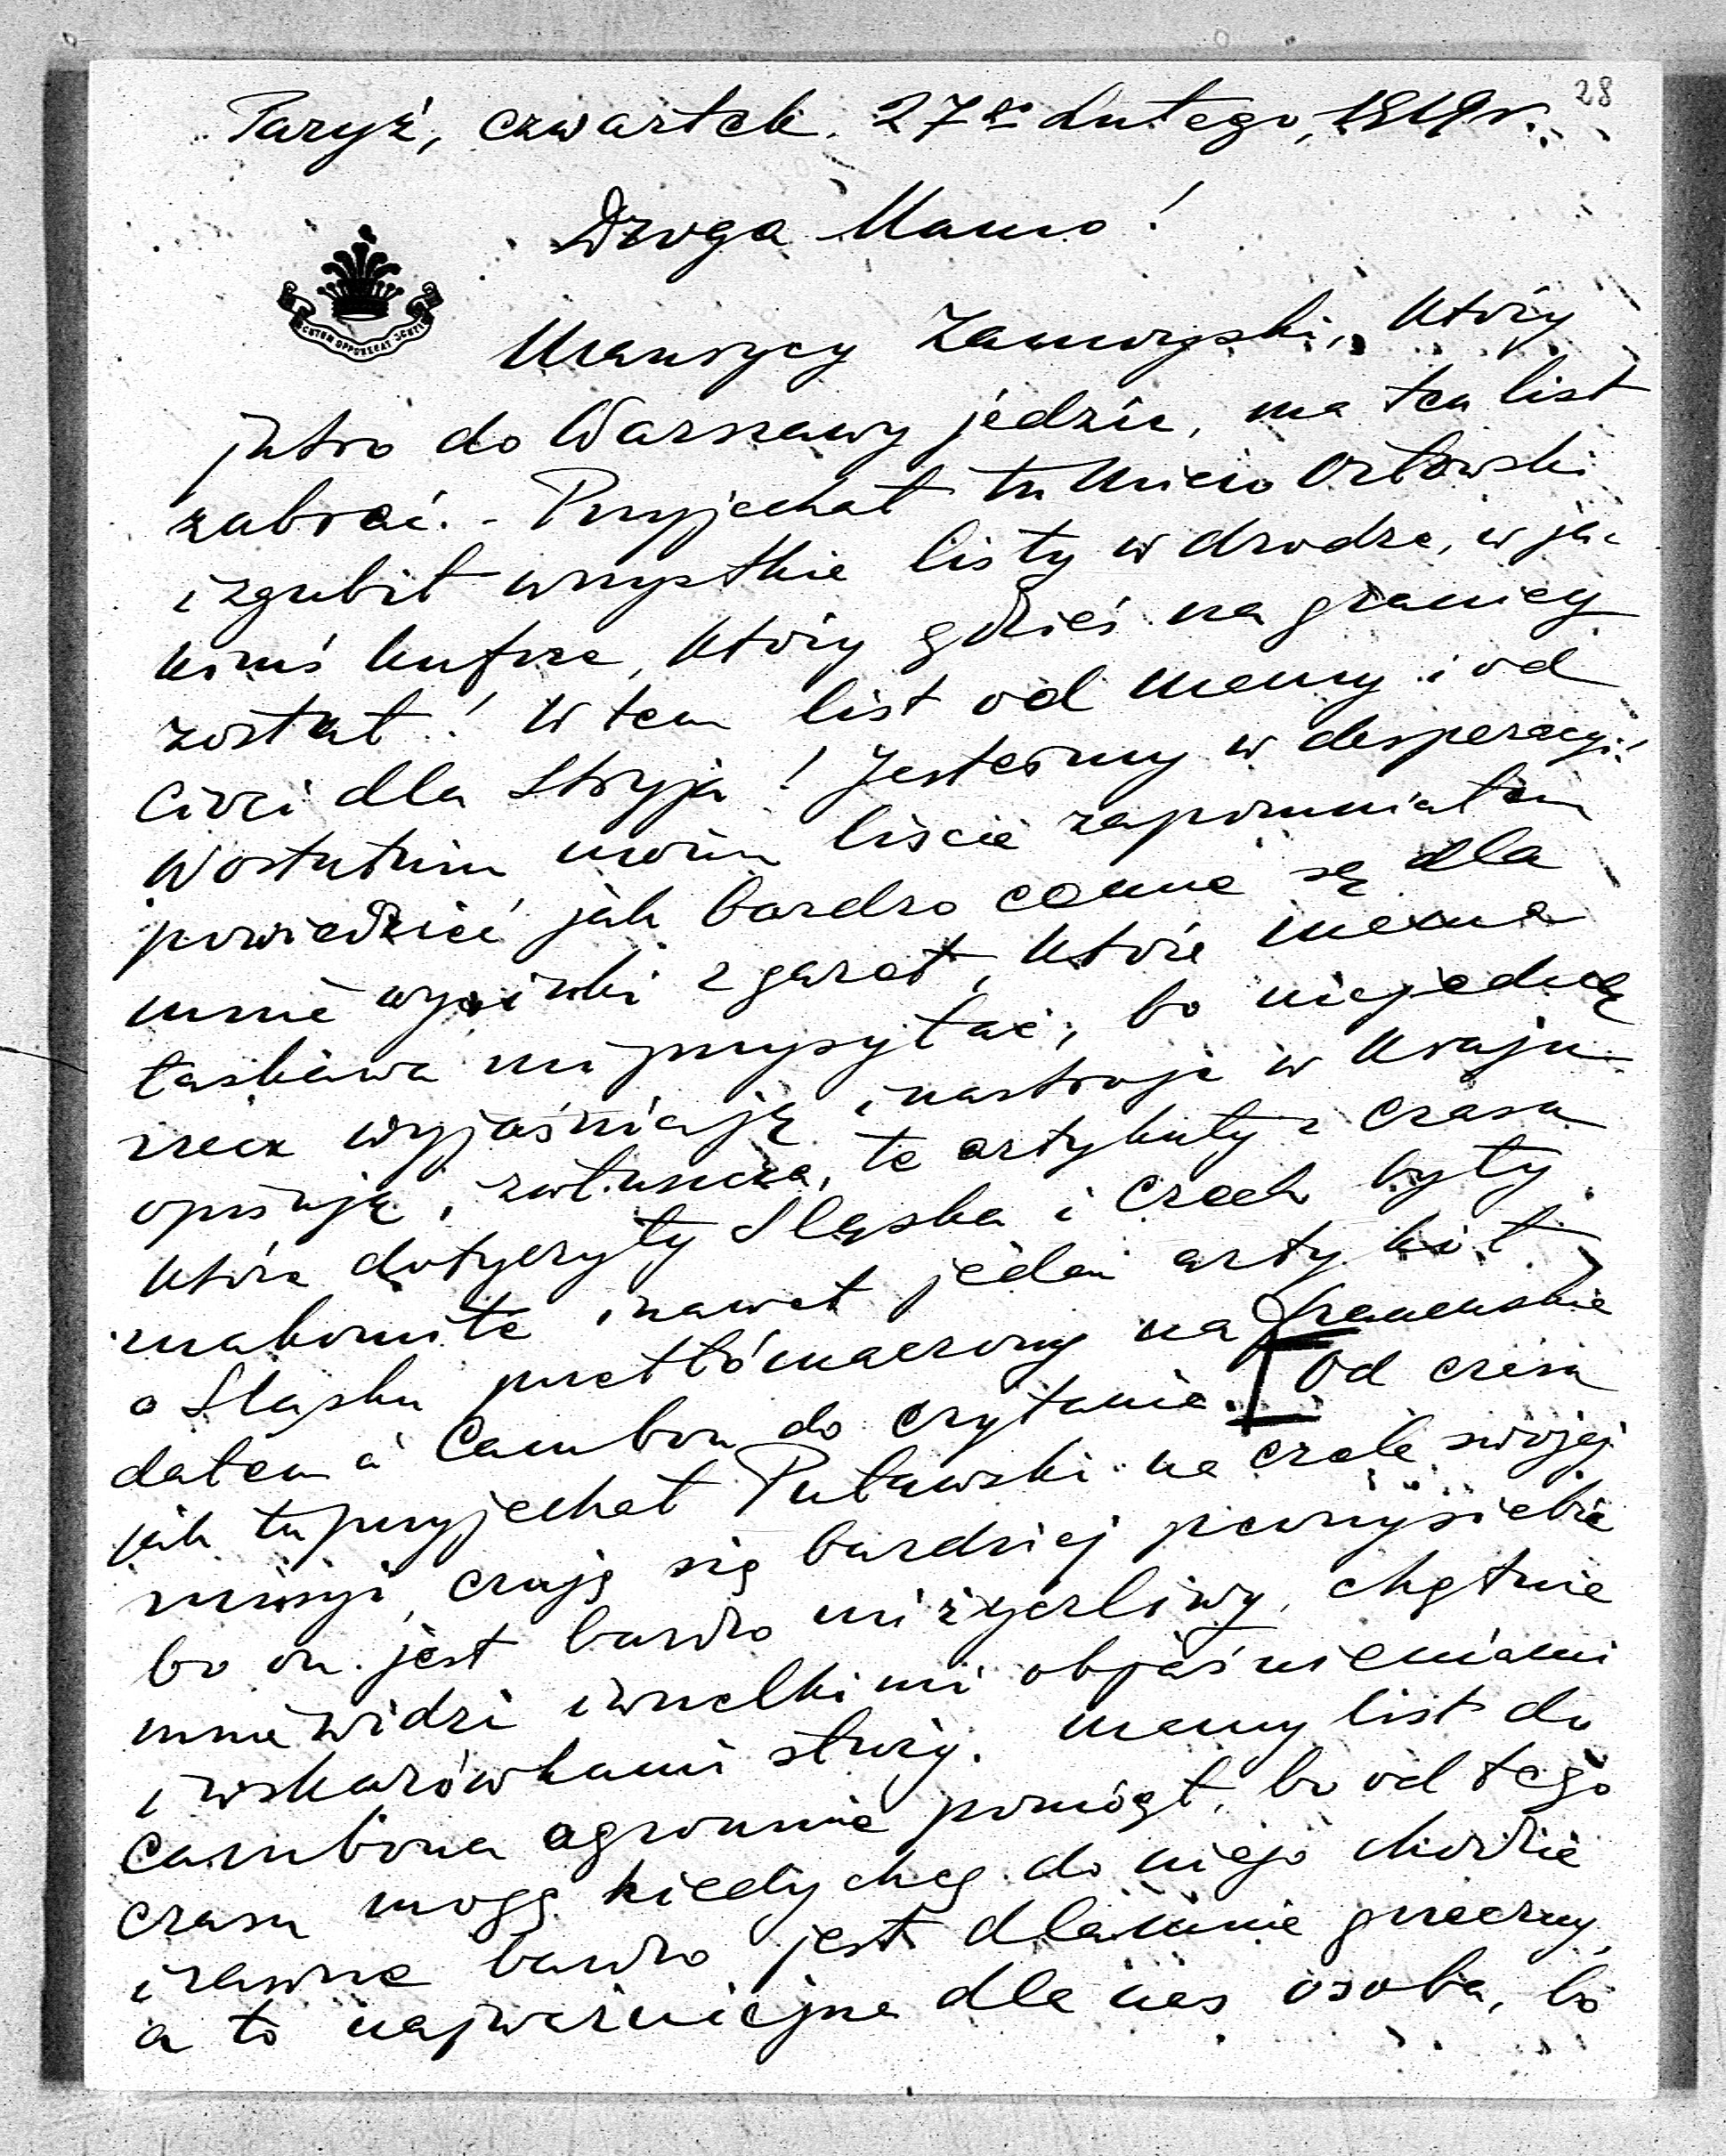 28
Paryż, czwartek. 27go Lutego, 1919 r.
Droga Mamo!
Maurycy Zamoyski, który
jutro do Warszawy jedzie, ma ten list
zabrać. - Przyjechał tu Micio Orłowski
i zgubił wszystkie listy w drodze, w ja-
kimś kufrze, który gdzieś na granicy
został! W tem list od Mamy i od
Cioci dla Stryja! Jesteśmy w desperacyi!
W ostatnim moim liście zapomniałem
powiedzieć jak bardzo cenne są dla
mnie wycinki z gazet, które Mama
łaskawa mi przysyłać, bo niejedną
rzecz wyjaśniają i nastroje w Kraju
opisują, zwłaszcza, te artykuły z Czasu
które dotyczyły Sląska i Czech były
znakomite i nawet jeden artykół
o Sląsku przetłómaczony na francuskie
dałem à Cambon do czytania. [Od czasu
jak tu przyjechał Puławski na czele swojej
misyi, czuję się bardziej pewny siebie
bo on jest bardzo mi życzliwy, chętnie
mnie widzi i wszelkimi objaśnieniami
i wskazówkami służy. Mamy list do
Cambona ogromnie pomógł, bo od tego
czasu mogę kiedy chcę do niego chodzić
i zawsze bardzo jest dla mnie grzeczny,
a to najważniejsza dla nas osoba, bo